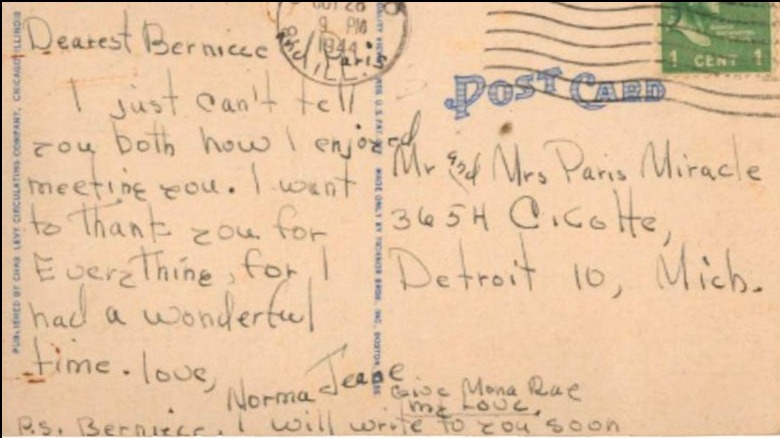 Dearest Berniece
and Paris
I just can't tell
you both how I enjoyed
meeting you. I want
to thank you for
Everything, for I
had a wonderful
time. love,
Norma Jeane
P.S. Berniece. I will write to you soon
Give Mona Rae
my Love.
9 PM
1944
ILL.
1 CENT 1
POST CARD
Mr and Mrs Paris Miracle
3654 Cicotte,
Detroit 10, Mich.
PUBLISHED BY CHAS. LEVY CIRCULATING COMPANY, CHICAGO, ILLINOIS
MADE ONLY BY TICHNOR BROS. INC. BOSTON